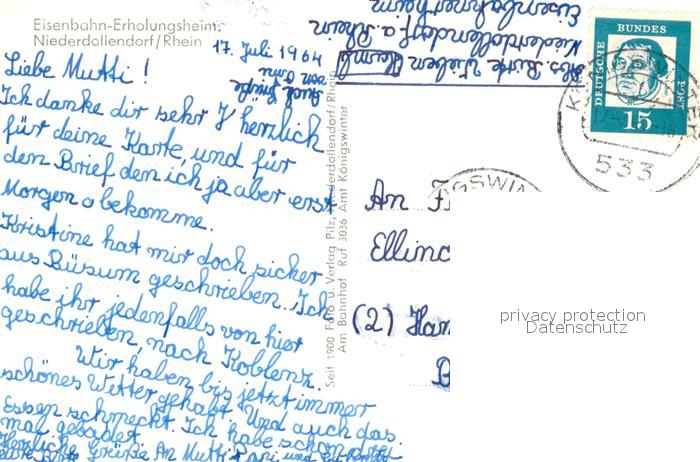 Eisenbahn-Erholungsheim
Niederdollendorf/Rhein
17. Juli 1964
Liebe Mutti!
Ich danke dir sehr herzlich
für deine Karte, und für
den Brief den ich ja aber erst
Morgen bekomme.
Kristine hat mir doch sicher
aus Büsum geschrieben. Ich
habe ihr jedenfalls von hier
geschrieben, nach Koblenz.
Wir haben bis jetzt immer
schönes Wetter gehabt. Und auch das
Essen schmeckt. Ich habe schon
mal gebadet.
Herzliche Grüße An Mutti
Auch Grüße
von
Abs. Wieben
Niederdollendorf a. Rhein
Eisenbahnerheim
Seit 1900 Foto u. Verlag Pilz, Niederdollendorf/Rhein
Am Bahnhof Ruf 3036 Amt Königswinter
DEUTSCHE
BUNDES
POST
15
533
GSWIN
An F
Ellin
(2) Ham
B
privacy protection
Datenschutz